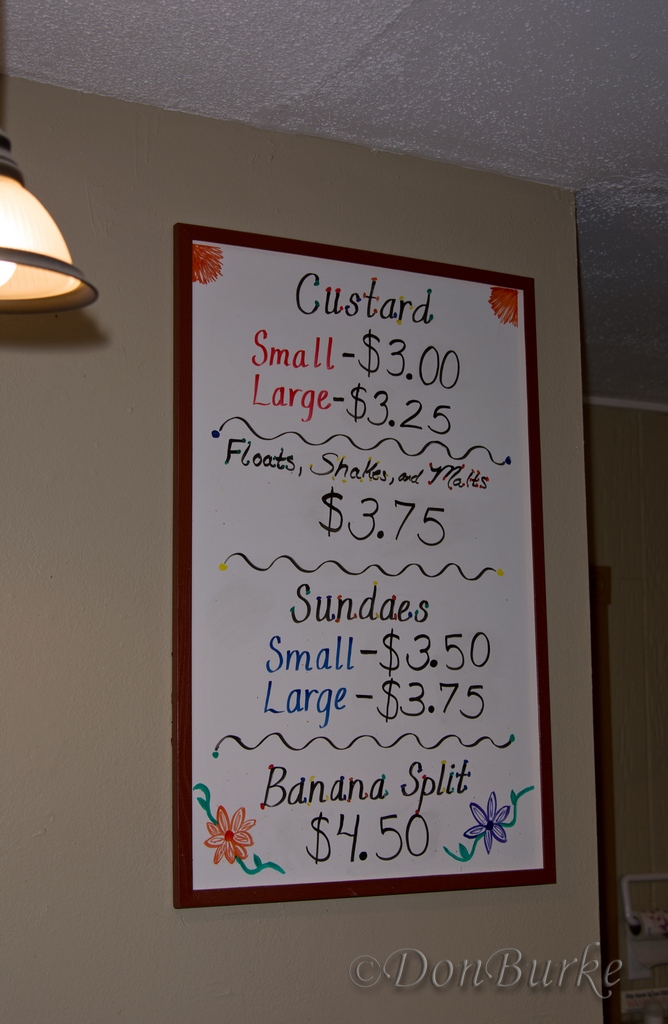 Custard
Small - $3.00
Large - $3.25
Floats, Shakes, and Malts
$3.75
Sundaes
Small - $3.50
Large - $3.75
Banana Split
$4.50
©DonBurke